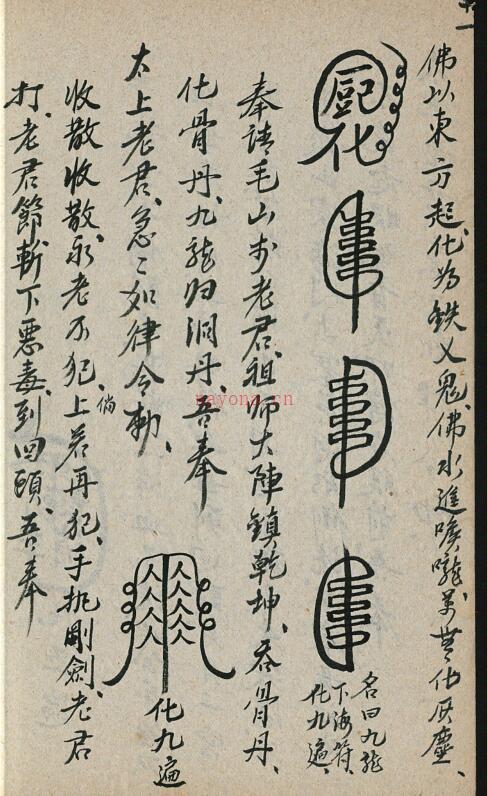 十一
佛以東方起、化為鉄乂鬼、佛水進喉嚨、万物化灰塵、
化
名曰九龍
下海符、
化九遍、
奉請毛山步老君、祖師大陣鎮乾坤、吞骨丹、
化骨丹、九龍归洞丹、吾奉
太上老君、急〻如律令勅、
化九遍
收散收散、永老不犯、上若再犯、手执剛劍、老君
倘
打、老君節斬下惡毒、到回頭、吾奉
nayona.cn